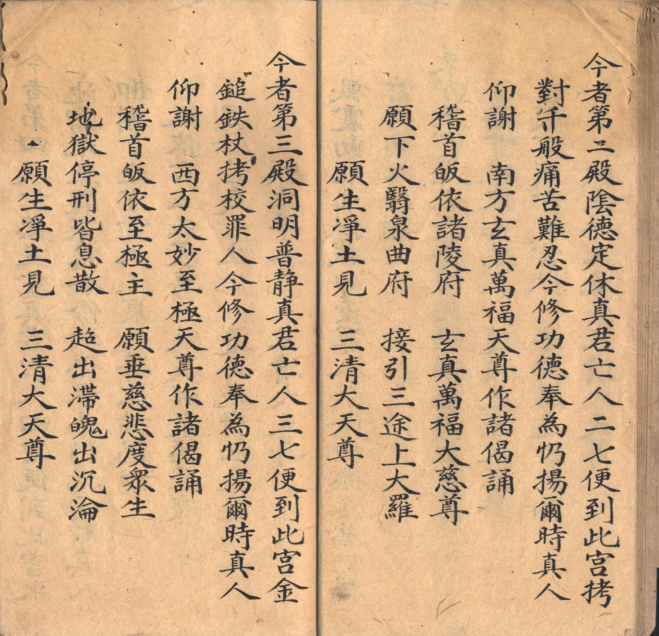 今者第二殿陰德定休真君亡人二七便到此宮拷
對千般痛苦難忍今修功德奉為㧄揚爾時真人
仰謝 南方玄真萬福天尊作諸偈誦
稽首皈依諸陵府 玄真萬福大慈尊
願下火翳泉曲府 接引三途上大羅
願生凈土見 三清大天尊
今者第三殿洞明普静真君亡人三七便到此宮金
鎚鉄杖拷校罪人今修功德奉為㧄揚爾時真人
仰謝 西方太妙至極天尊作諸偈誦
稽首皈依至極主 願垂慈悲度眾生
地獄停刑皆息散 超出滯魄出沉淪
願生凈土見 三清大天尊